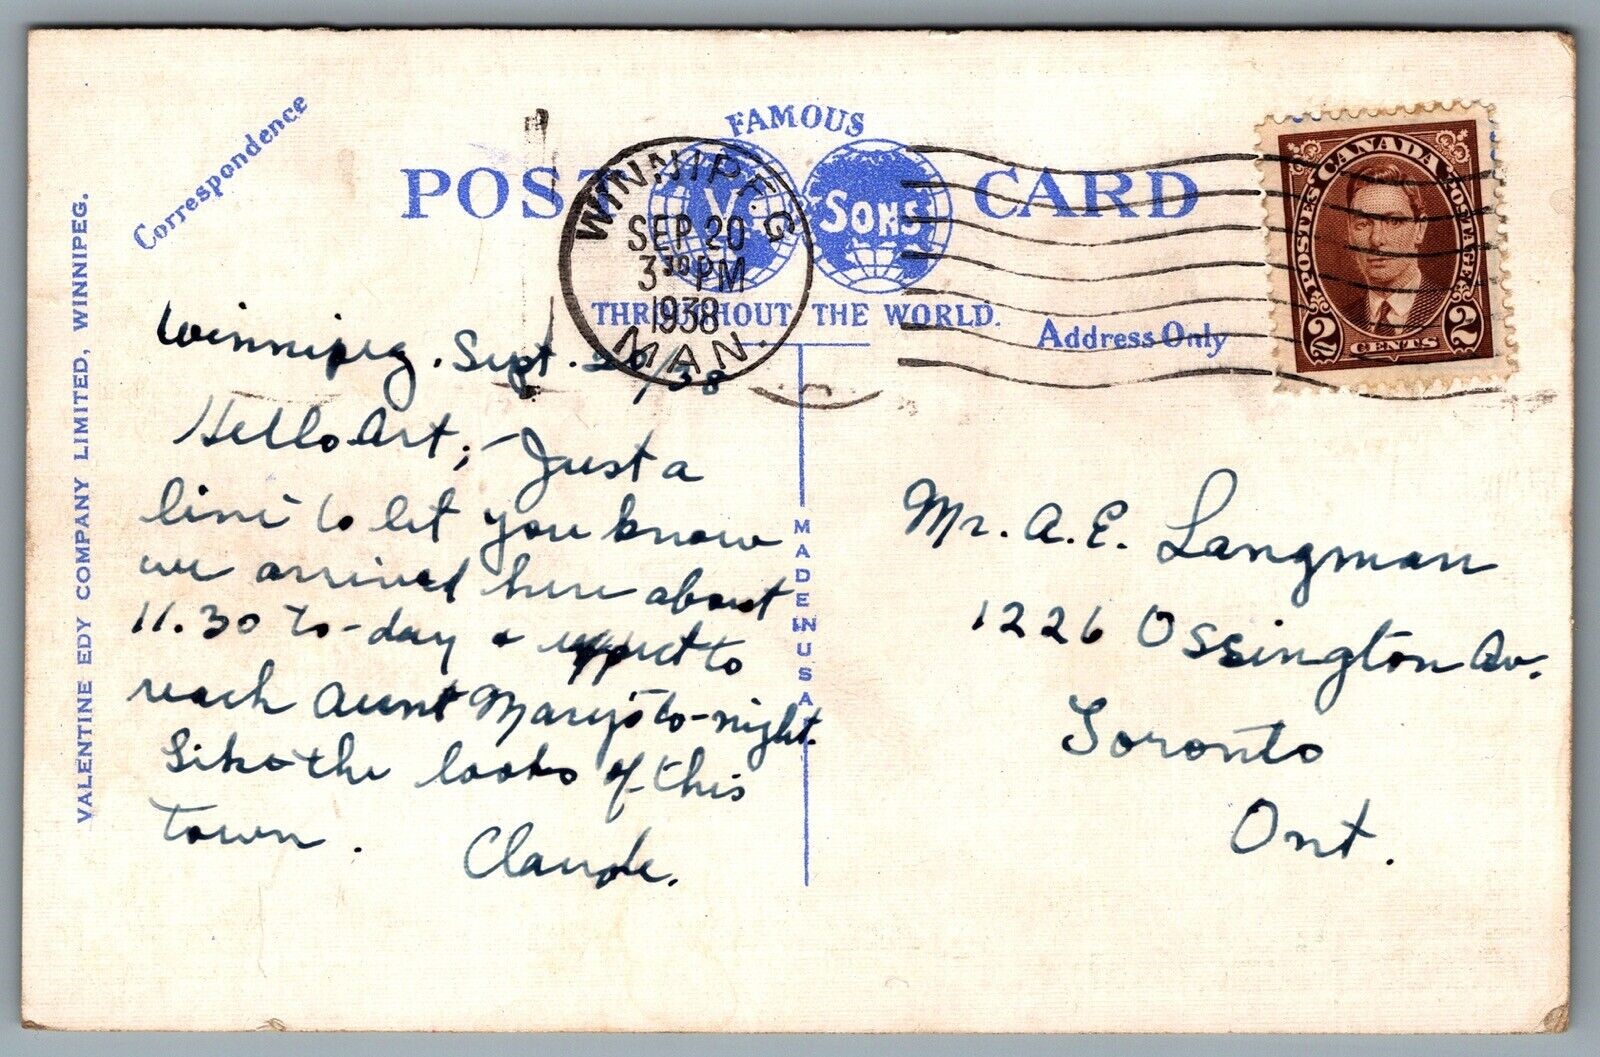 VALENTINE EDY COMPANY LIMITED, WINNIPEG.
Correspondence
FAMOUS
POST CARD
V. SONS
THROUGHOUT THE WORLD.
Address Only
WINNIPEG
SEP 20
3 30 PM
1938
MAN.
POSTES CANADA POSTAGE
2 CENTS 2
MADE IN USA
Winnipeg. Sept. 20/38
Hello Art; – Just a
line to let you know
we arrived here about
11.30 to-day & expect to
reach Aunt Mary's to-night.
Like the looks of this
town.
Claude.
Mr. A. E. Langman
1226 Ossington Av.
Toronto
Ont.